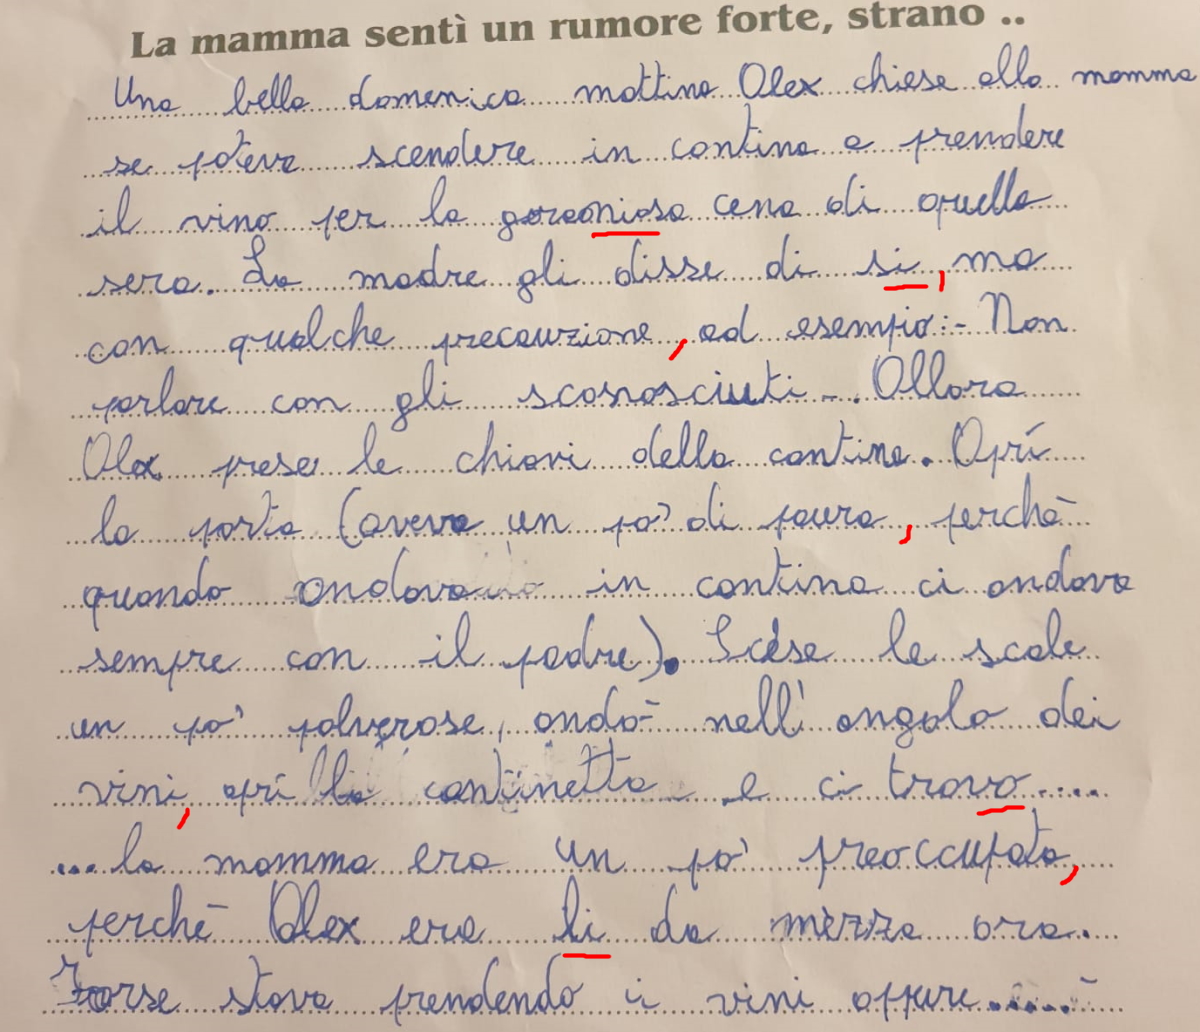 La mamma sentì un rumore forte, strano ..
Una bella domenica mattina Alex chiese alla mamma
se poteva scendere in cantina a prendere
il vino per la goraoniosa cena di quella
sera. La madre gli disse di si, ma
con qualche precauzione, ad esempio:- Non
parlare con gli sconosciuti-. Allora
Alex prese le chiavi della cantina. Aprí
la porta (aveva un po' di paura, perchē
quando andava in cantina ci andava
sempre con il padre). Scése le scale
un po' polverose, andō nell'angolo dei
vini, aprí la cantinetta e ci trovo.....
...la mamma era un po' preoccupata,
perchē Alex era li da mèzza ora.
Forse stava prendendo i vini oppure......